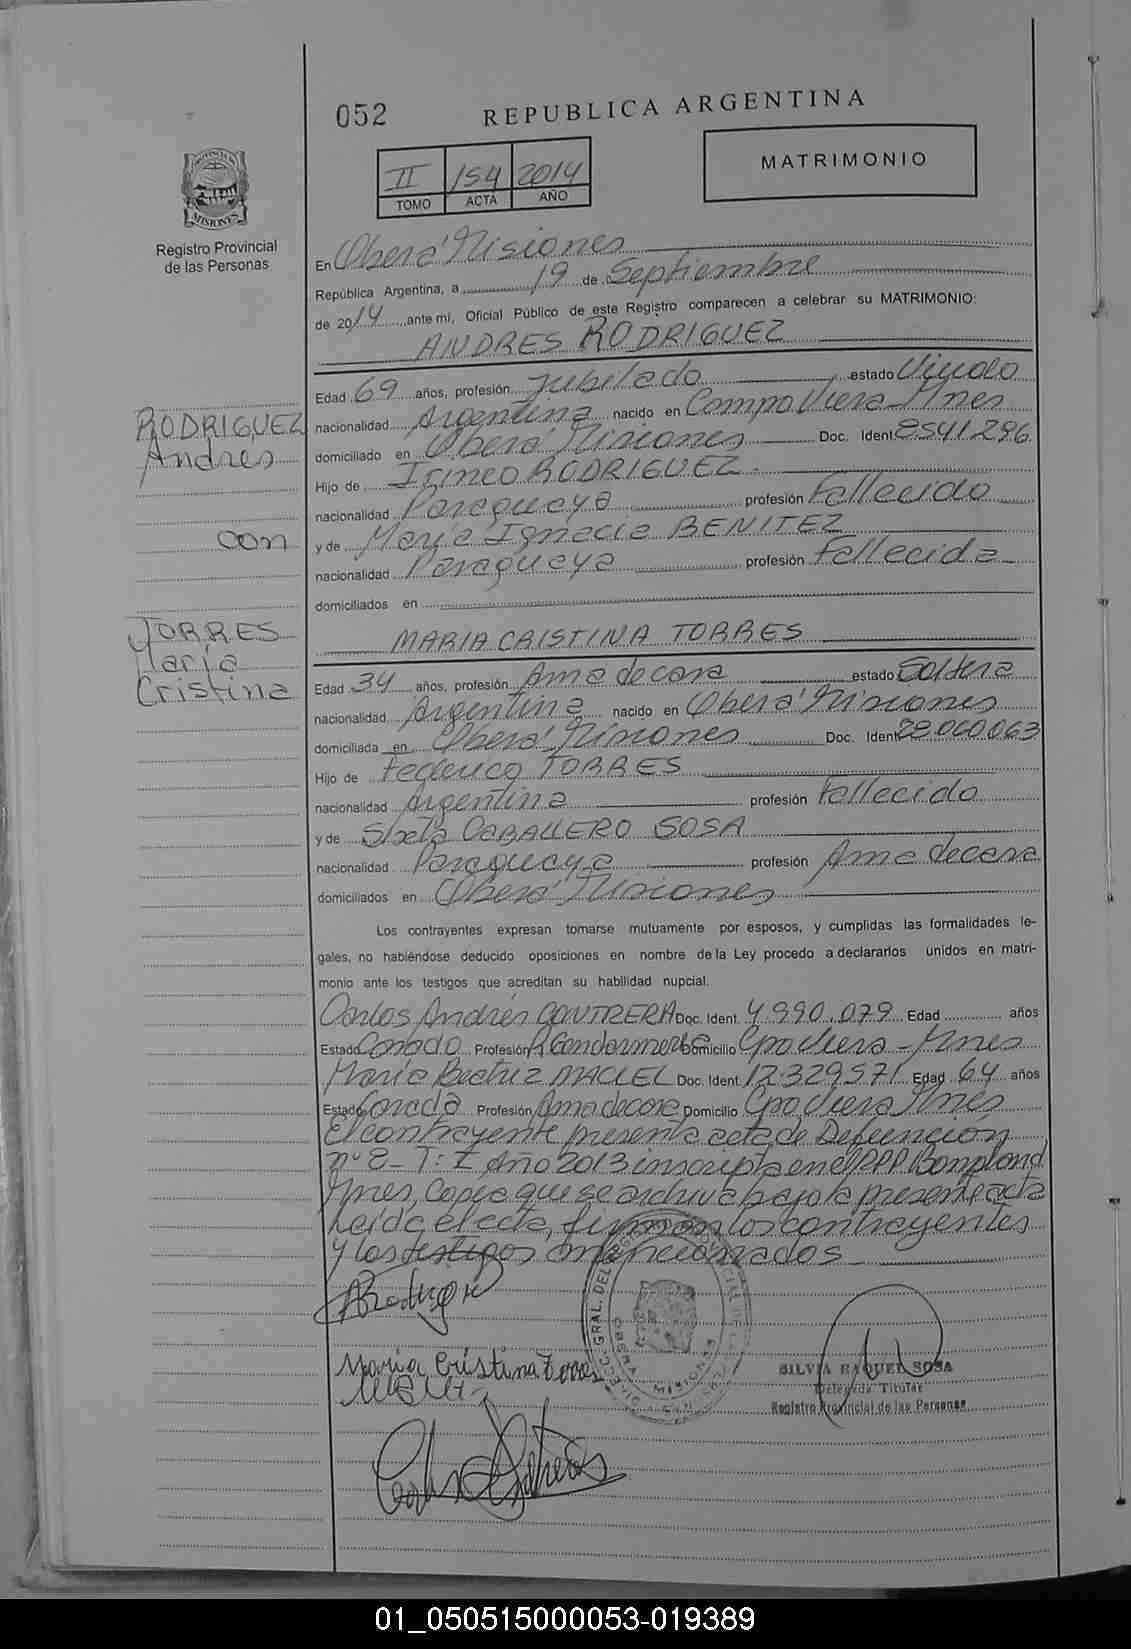 052
REPUBLICA ARGENTINA
MATRIMONIO
II 154 2014
TOMO ACTA AÑO
PROVINCIA DE
MISIONES
Registro Provincial
de las Personas
En Oberá Misiones
República Argentina, a 19 de Septiembre
de 2014 ante mí, Oficial Público de este Registro comparecen a celebrar su MATRIMONIO:
ANDRES RODRIGUEZ
Edad 69 años, profesión Jubilado estado Viudo
nacionalidad Argentina nacido en Campo Viera - Mnes
domiciliado en Oberá Misiones Doc. Ident 8541296
Hijo de Irineo RODRIGUEZ.
nacionalidad Paraguaya profesión Fallecido
y de María Ignacia BENITEZ
nacionalidad Paraguaya profesión Fallecida
domiciliados en
RODRIGUEZ
Andres
con
TORRES
María
Cristina
MARIA CRISTINA TORRES
Edad 34 años, profesión Ama de casa estado Soltera
nacionalidad Argentina nacido en Oberá Misiones
domiciliada en Oberá Misiones Doc. Ident 28.060.063
Hijo de Federico TORRES
nacionalidad Argentina profesión Fallecido
y de Sixta CABALLERO SOSA
nacionalidad Paraguaya profesión Ama de casa
domiciliados en Oberá Misiones
Los contrayentes expresan tomarse mutuamente por esposos, y cumplidas las formalidades le-
gales, no habiéndose deducido oposiciones en nombre de la Ley procedo a declararlos unidos en matri-
monio ante los testigos que acreditan su habilidad nupcial.
Carlos Andrés CONTRERA Doc. Ident. 4.990.079 Edad años
Estado Casado Profesión R. Gendarmería Domicilio Cpo Viera - Mnes
María Beatriz MACIEL Doc. Ident. 12.329571 Edad 64 años
Estado Casada Profesión Ama de casa Domicilio Cpo Viera Mnes
El contrayente presenta acta de Defunción
nº 8 - T: I Año 2013 inscripta en el RPP Bonpland
Mnes, Copia que se archiva bajo la presente acta
Leída el acta, firman los contrayentes
y los testigos mencionados
ARodriguez
Maria Cristina Torres
SILVIA RAQUEL SOSA
Delegada Titular
Registro Provincial de las Personas
MISIONES
01_050515000053-019389